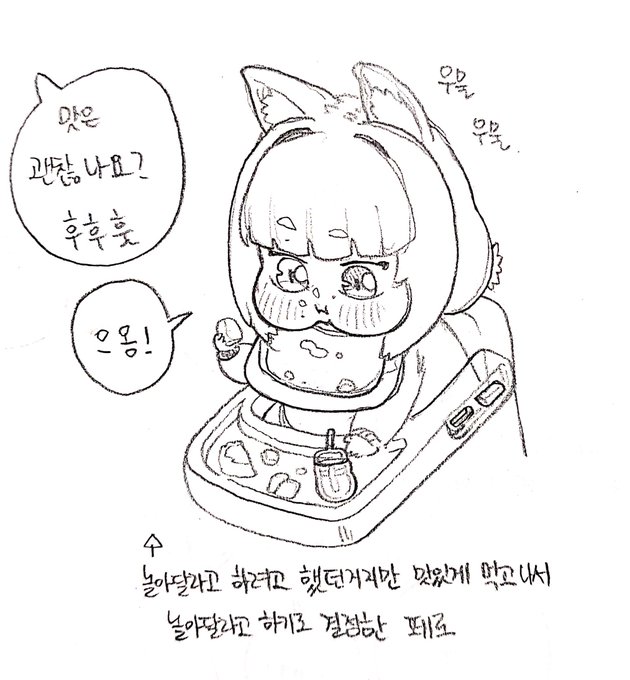 맛은
괜찮나요?
후후훗
으몽!
우물
우물
놀아달라고 하려고 했던거지만 맛있게 먹고나서
놀아달라고 하기로 결정한 페로